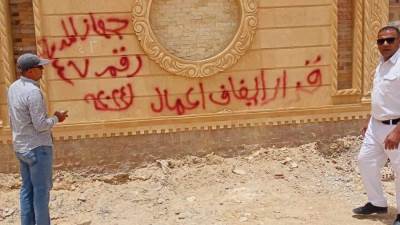 جهاز المدينة
رقم ٤٧
قرار ايقاف اعمال